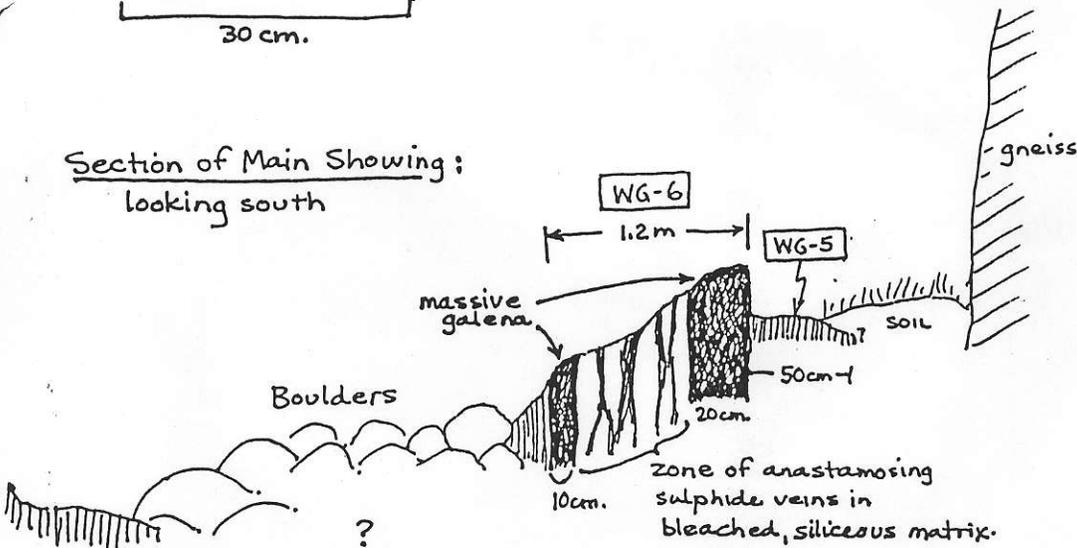 30 cm.
Section of Main Showing:
looking south
gneiss
WG-6
1.2m
WG-5
massive
galena
SOIL
?
50cm
Boulders
20cm.
10cm.
zone of anastamosing
sulphide veins in
bleached, siliceous matrix.
?